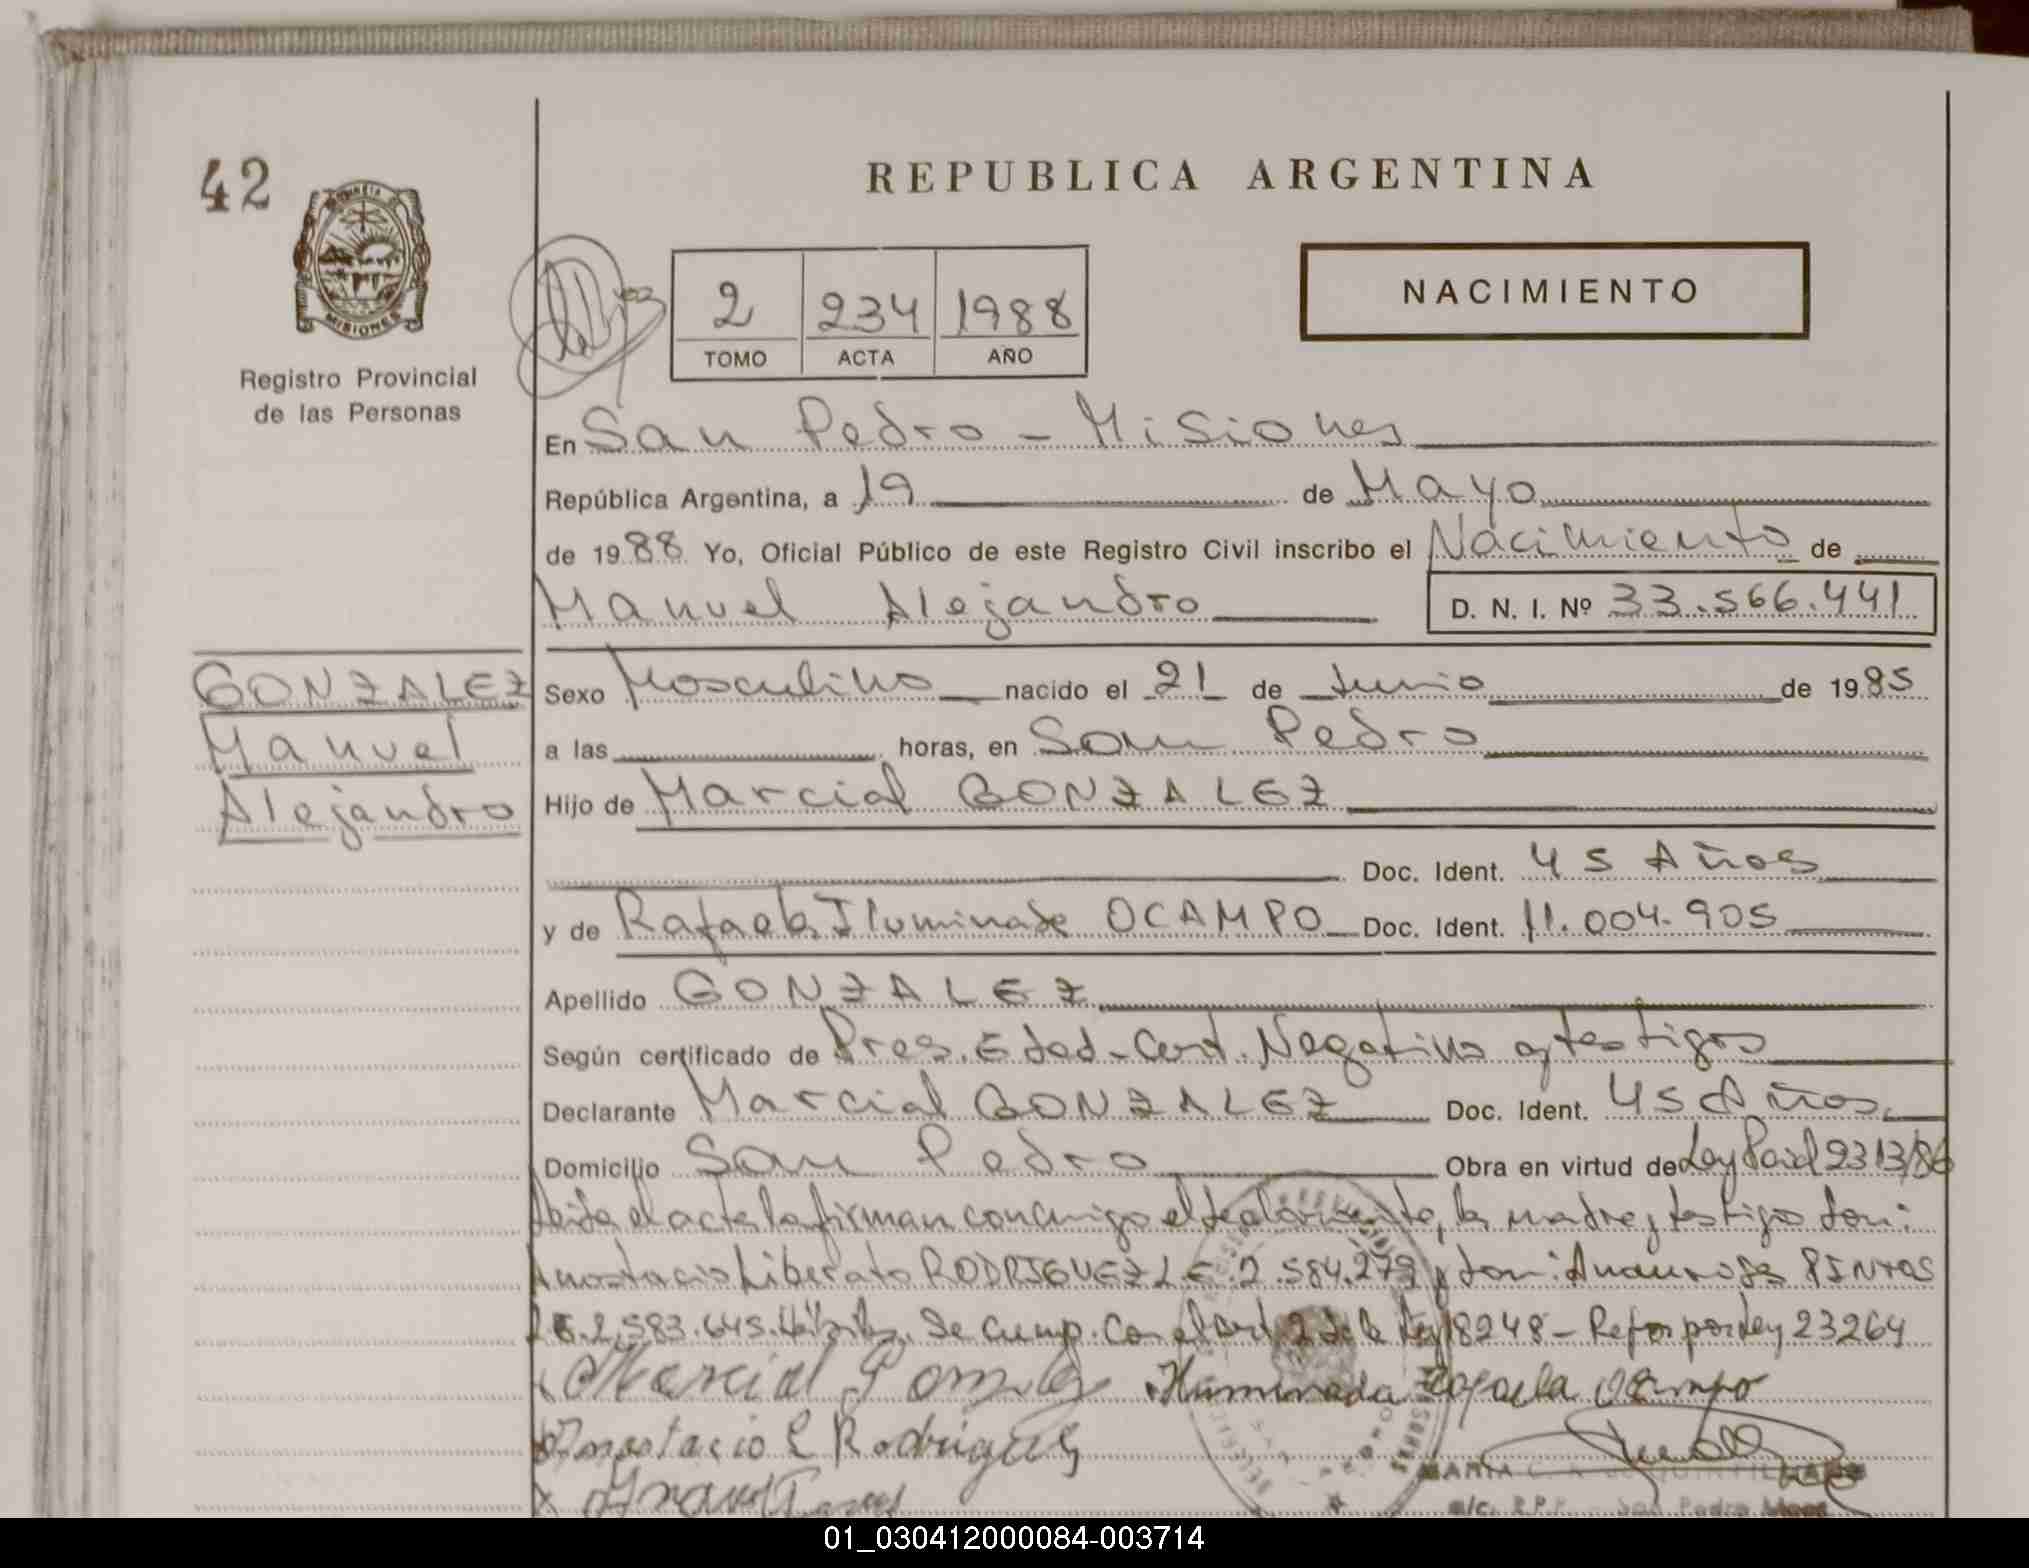 42
REPUBLICA ARGENTINA
PROVINCIA
MISIONES
Registro Provincial
de las Personas
NACIMIENTO
2 234 1988
TOMO ACTA AÑO
En San Pedro - Misiones
República Argentina, a 19 de Mayo
de 1988 Yo, Oficial Público de este Registro Civil inscribo el Nacimiento de
Manuel Alejandro D. N. I. Nº 33.566.441
GONZALEZ
Manuel
Alejandro
Sexo Masculino nacido el 21 de Junio de 1985
a las horas, en San Pedro
Hijo de Marcial GONZALEZ
Doc. Ident. 45 Años
y de Rafaela Iluminada OCAMPO Doc. Ident. 11.004.905
Apellido GONZALEZ
Según certificado de Pres. Edad - Cert. Negativo y testigos
Declarante Marcial GONZALEZ Doc. Ident. 45 Años.
Domicilio San Pedro Obra en virtud de Ley Pcial 2313/86
el acta la firman conmigo el declarante, la madre y testigos don:
Anastacio Liberato RODRIGUEZ L.E. 2.584.279 y don: PINTOS
L.E. 2.583.645. Se cump. con el art 2 de la Ley 18248 - Refor por Ley 23264
Marcial Gonzalez Iluminada Rafaela Ocampo
Anastacio L Rodriguez
MARIA
a/c. R.P.P. San Pedro Mnes
01_030412000084-003714